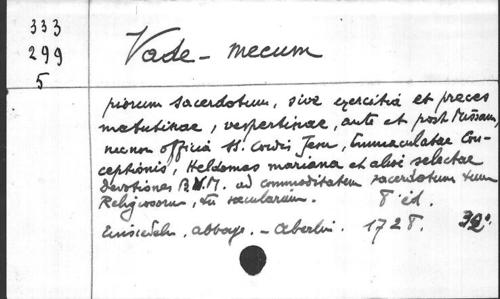 333
299
5
Vade-mecum
piorum sacerdotum, sive exercitia et preces
matutinae, vespertinae, ante et post Missam,
necnon officia ss. Cordis Jesu, Immaculatae Con-
ceptionis, Heldomas mariana et aliae selectae
Devotiones B.V.M. ad commoditatem sacerdotum tum
Religiosorum, tum saecularium. 8° éd.
Einsiedeln, abbaye. - Eberlin. 1728. 32°.